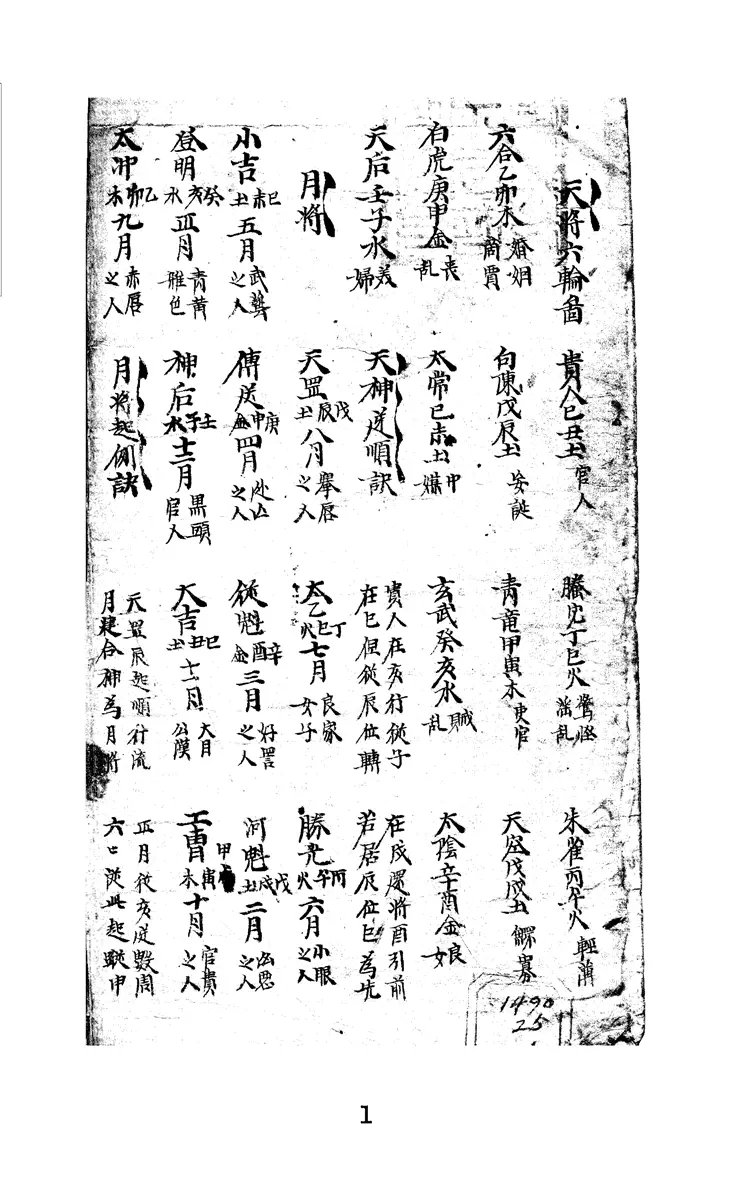 天將六輪啚 貴人己丑土 官人 騰蛇丁巳火 驚怪淫乱 朱雀丙午火 輕薄
六合乙卯木 婚姻商賈 勾陳戊辰土 妄誕 青竜甲寅木 吏官 天空戊戌土 鰥寡
白虎庚申金 喪乱 太常己未土 中媒 玄武癸亥水 賊乱 太陰辛酉金 娘女
天后壬子水 美婦 天神逆順訣 貴人在亥行從子 在戌還將酉引前
在巳但從辰位轉 若居辰位巳為先
月將 天罡戊辰土八月 擧唇之人 太乙丁巳火七月 良家女子 勝光丙午火六月 小眼之人
小吉己未土五月 武藝之人 傳送庚申金四月 之人 從魁辛酉金三月 好詈之人 河魁戊戌土二月 凶惡之人
登明癸亥水正月 青黄雜色 神后壬子水十二月 黒頭官人 大吉己丑土十一月 大目公 工曹甲寅木十月 官貴之人
太冲乙卯木九月 赤唇之人 月將起例訣 天罡辰起順行流 正月從亥逆數周
月建合神為月將 六 從此起 申
1490
25
1